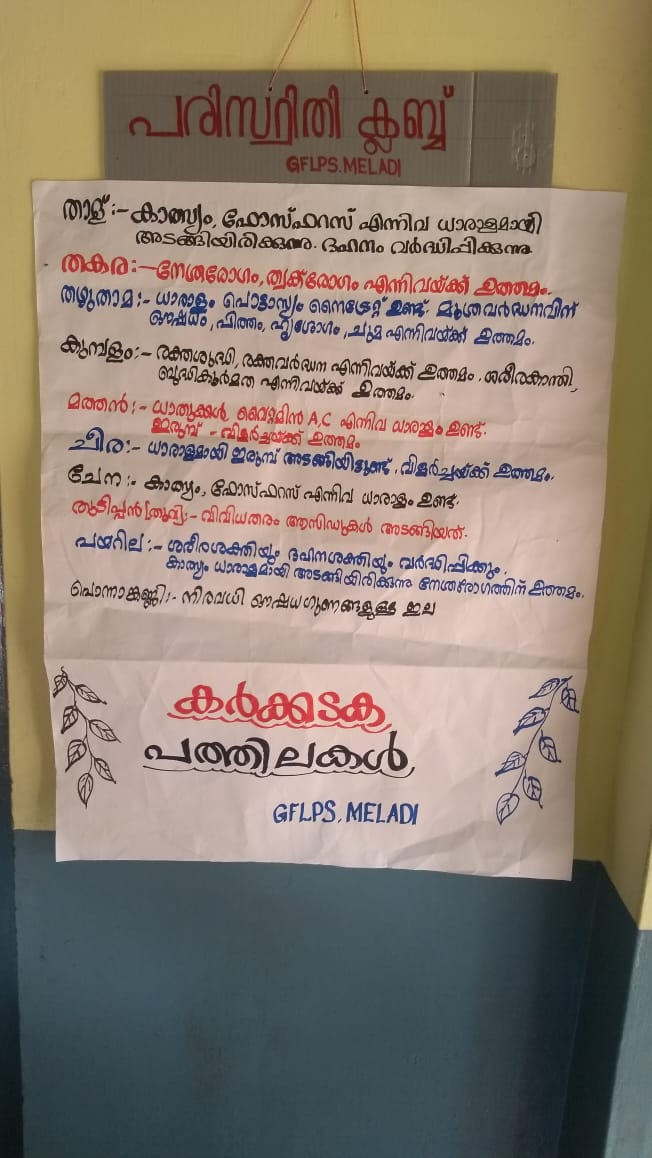 പരിസ്ഥിതി ക്ലബ്ബ്
GFLPS.MELADI
താള് :- കാത്സ്യം, ഫോസ്ഫറസ് എന്നിവ ധാരാളമായി
അടങ്ങിയിരിക്കുന്നു. ദഹനം വർദ്ധിപ്പിക്കുന്നു.
തകര :- നേത്രരോഗം, ത്വക്‌രോഗം എന്നിവയ്ക്ക് ഉത്തമം.
തഴുതാമ :- ധാരാളം പൊട്ടാസ്യം നൈട്രേറ്റ് ഉണ്ട്. മൂത്രവർദ്ധനവിന്
ഔഷധം, പിത്തം, ഹൃദ്രോഗം, ചുമ എന്നിവയ്ക്ക് ഉത്തമം.
കുമ്പളം :- രക്തശുദ്ധി, രക്തവർദ്ധന എന്നിവയ്ക്ക് ഉത്തമം. ശരീരകാന്തി,
ബുദ്ധികൂർമത എന്നിവയ്ക്ക് ഉത്തമം.
മത്തൻ :- ധാതുക്കൾ, വൈറ്റമിൻ A, C എന്നിവ ധാരാളം ഉണ്ട്.
ഇരുമ്പ് - വിളർച്ചയ്ക്ക് ഉത്തമം
ചീര :- ധാരാളമായി ഇരുമ്പ് അടങ്ങിയിട്ടുണ്ട്, വിളർച്ചയ്ക്ക് ഉത്തമം.
ചേന :- കാത്യം, ഫോസ്ഫറസ് എന്നിവ ധാരാളം ഉണ്ട്.
ആടിപ്പൻ (തൂവ) :- വിവിധതരം ആസിഡുകൾ അടങ്ങിയത്.
പയറില :- ശരീരശക്തിയും ദഹനശക്തിയും വർദ്ധിപ്പിക്കും.
കാത്യം ധാരാളമായി അടങ്ങിയിരിക്കുന്നു നേത്രരോഗത്തിന് ഉത്തമം.
പൊന്നാങ്കണ്ണി :- നിരവധി ഔഷധഗുണങ്ങളുള്ള ഇല
കർക്കടക
പത്തിലകൾ
GFLPS, MELADI